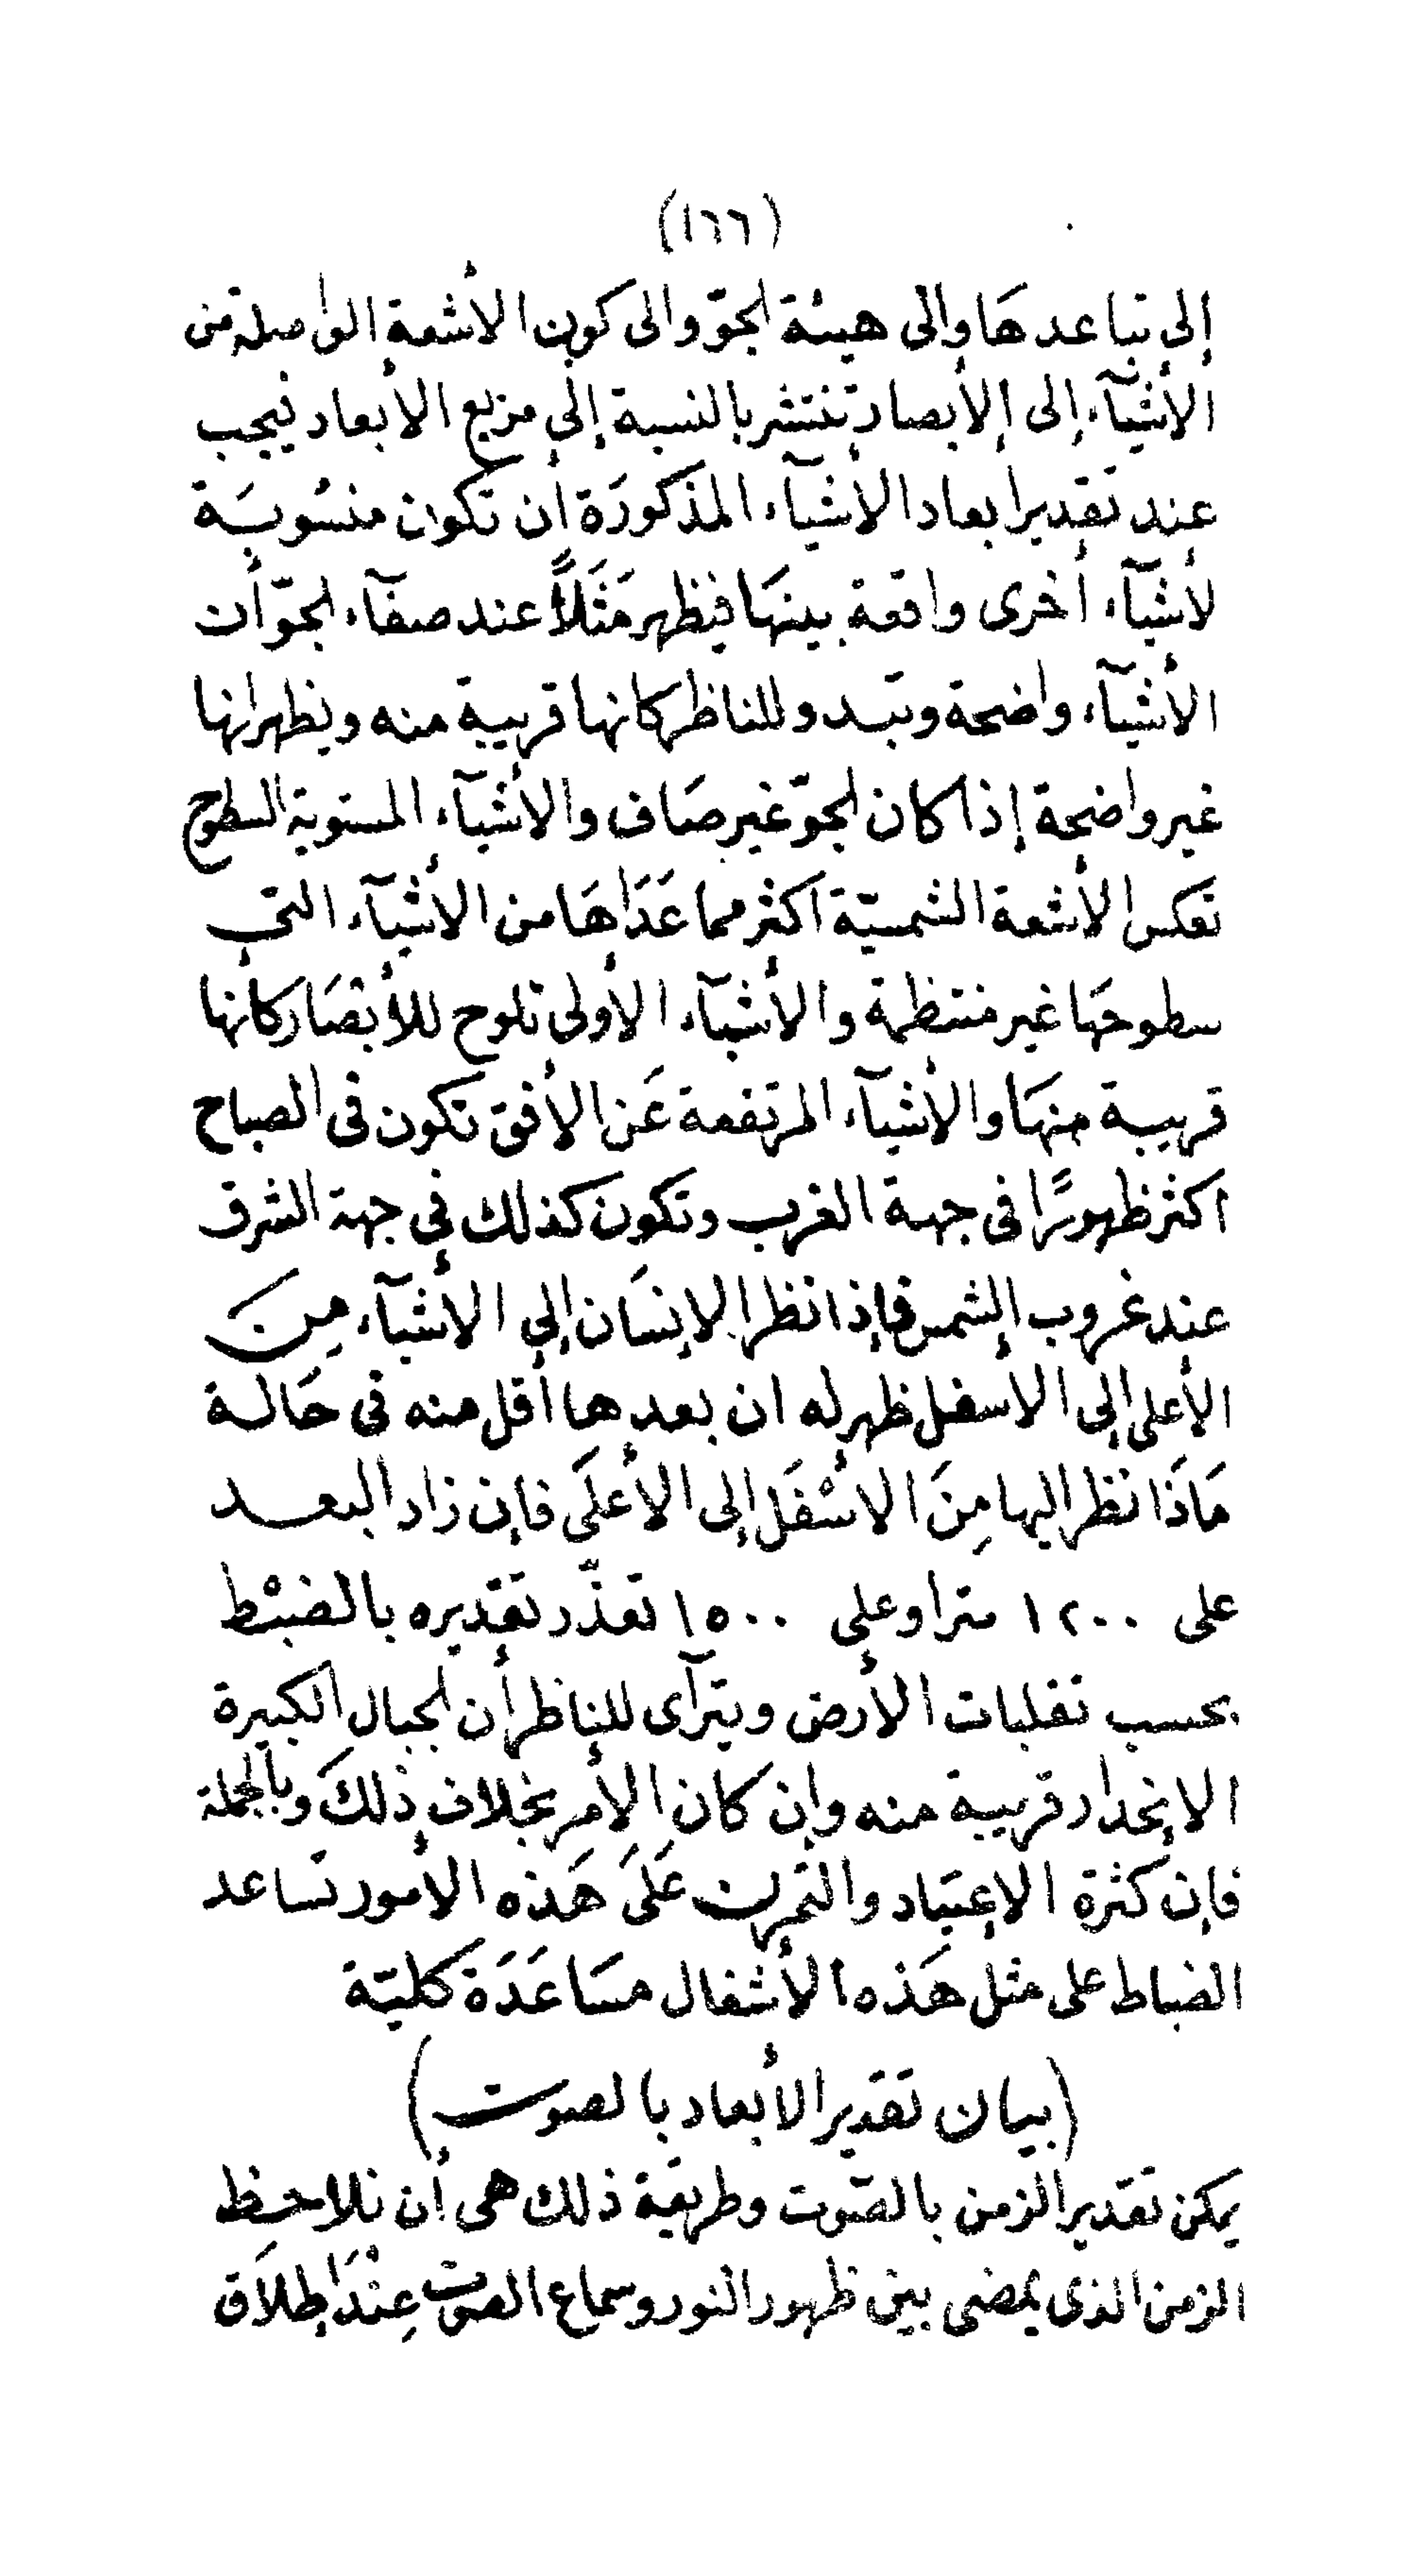 (١٦٦)
إلى تباعدها وإلى هيئة الجوّ والى كون الأشعة الواصلة من
الأشيآء إلى الأبصار تنتشر بالنسبة إلى مربع الأبعاد فيجب
عند تقدير أبعاد الأشيآء المذكورَة أن تكون منسُوبَة
لأشيآء أخرى واقعة بينهَا فيظهر مَثَلاً عند صفآء الجوّ أن
الأشيآء واضحة وتبدو للناظر كانها قريبة منه ويظهر انها
غير واضحة إذا كان الجوّ غير صَاف والأشيآء المستوية السطوح
تعكس الأشعة الشمسيّة اكثر مما عَدَاهَا من الأشيآء التى
سطوحهَا غير منتظمة والأشيآء الأولى تلوح للأبْصَار كأنها
قريبة منهَا والأشيآء المرتفعة عَن الأفق تكون فى الصباح
اكثر ظهورًا فى جهة الغرب وتكون كذلك فى جهة الشرق
عند غروب الشمس فإذا نظر الإنسَان إلى الأشيآء مِنَ
الأعلى إلى الاسفل ظهر له ان بعدها أقل منه فى حَالة
مَاذَا نظر اليها مِنَ الاسْفَل إلى الأعلَى فإن زاد البعد
على ١٢٠٠ مترا وعلى ١٥٠٠ تعذّر تقديره بالضبْط
بحسب تقلبات الأرض ويترآى للناظر أن الجبال الكبيرة
الانحدار قريبة منه وإن كان الأمر بخلاف ذلكَ وبالجملة
فإن كثرة الإعتياد والتمرن عَلَى هَذه الأمور تساعد
الضباط على مثل هَذه الأشغال مسَاعَدَة كليّة
(بيان تقدير الأبعاد بالصوت)
يمكن تقدير الزمن بالصّوت وطريقة ذلك هى أن نلاحظ
الزمن الذى يمضى بين ظهور النور وسماع الصوت عِنْدَ إطلاَق